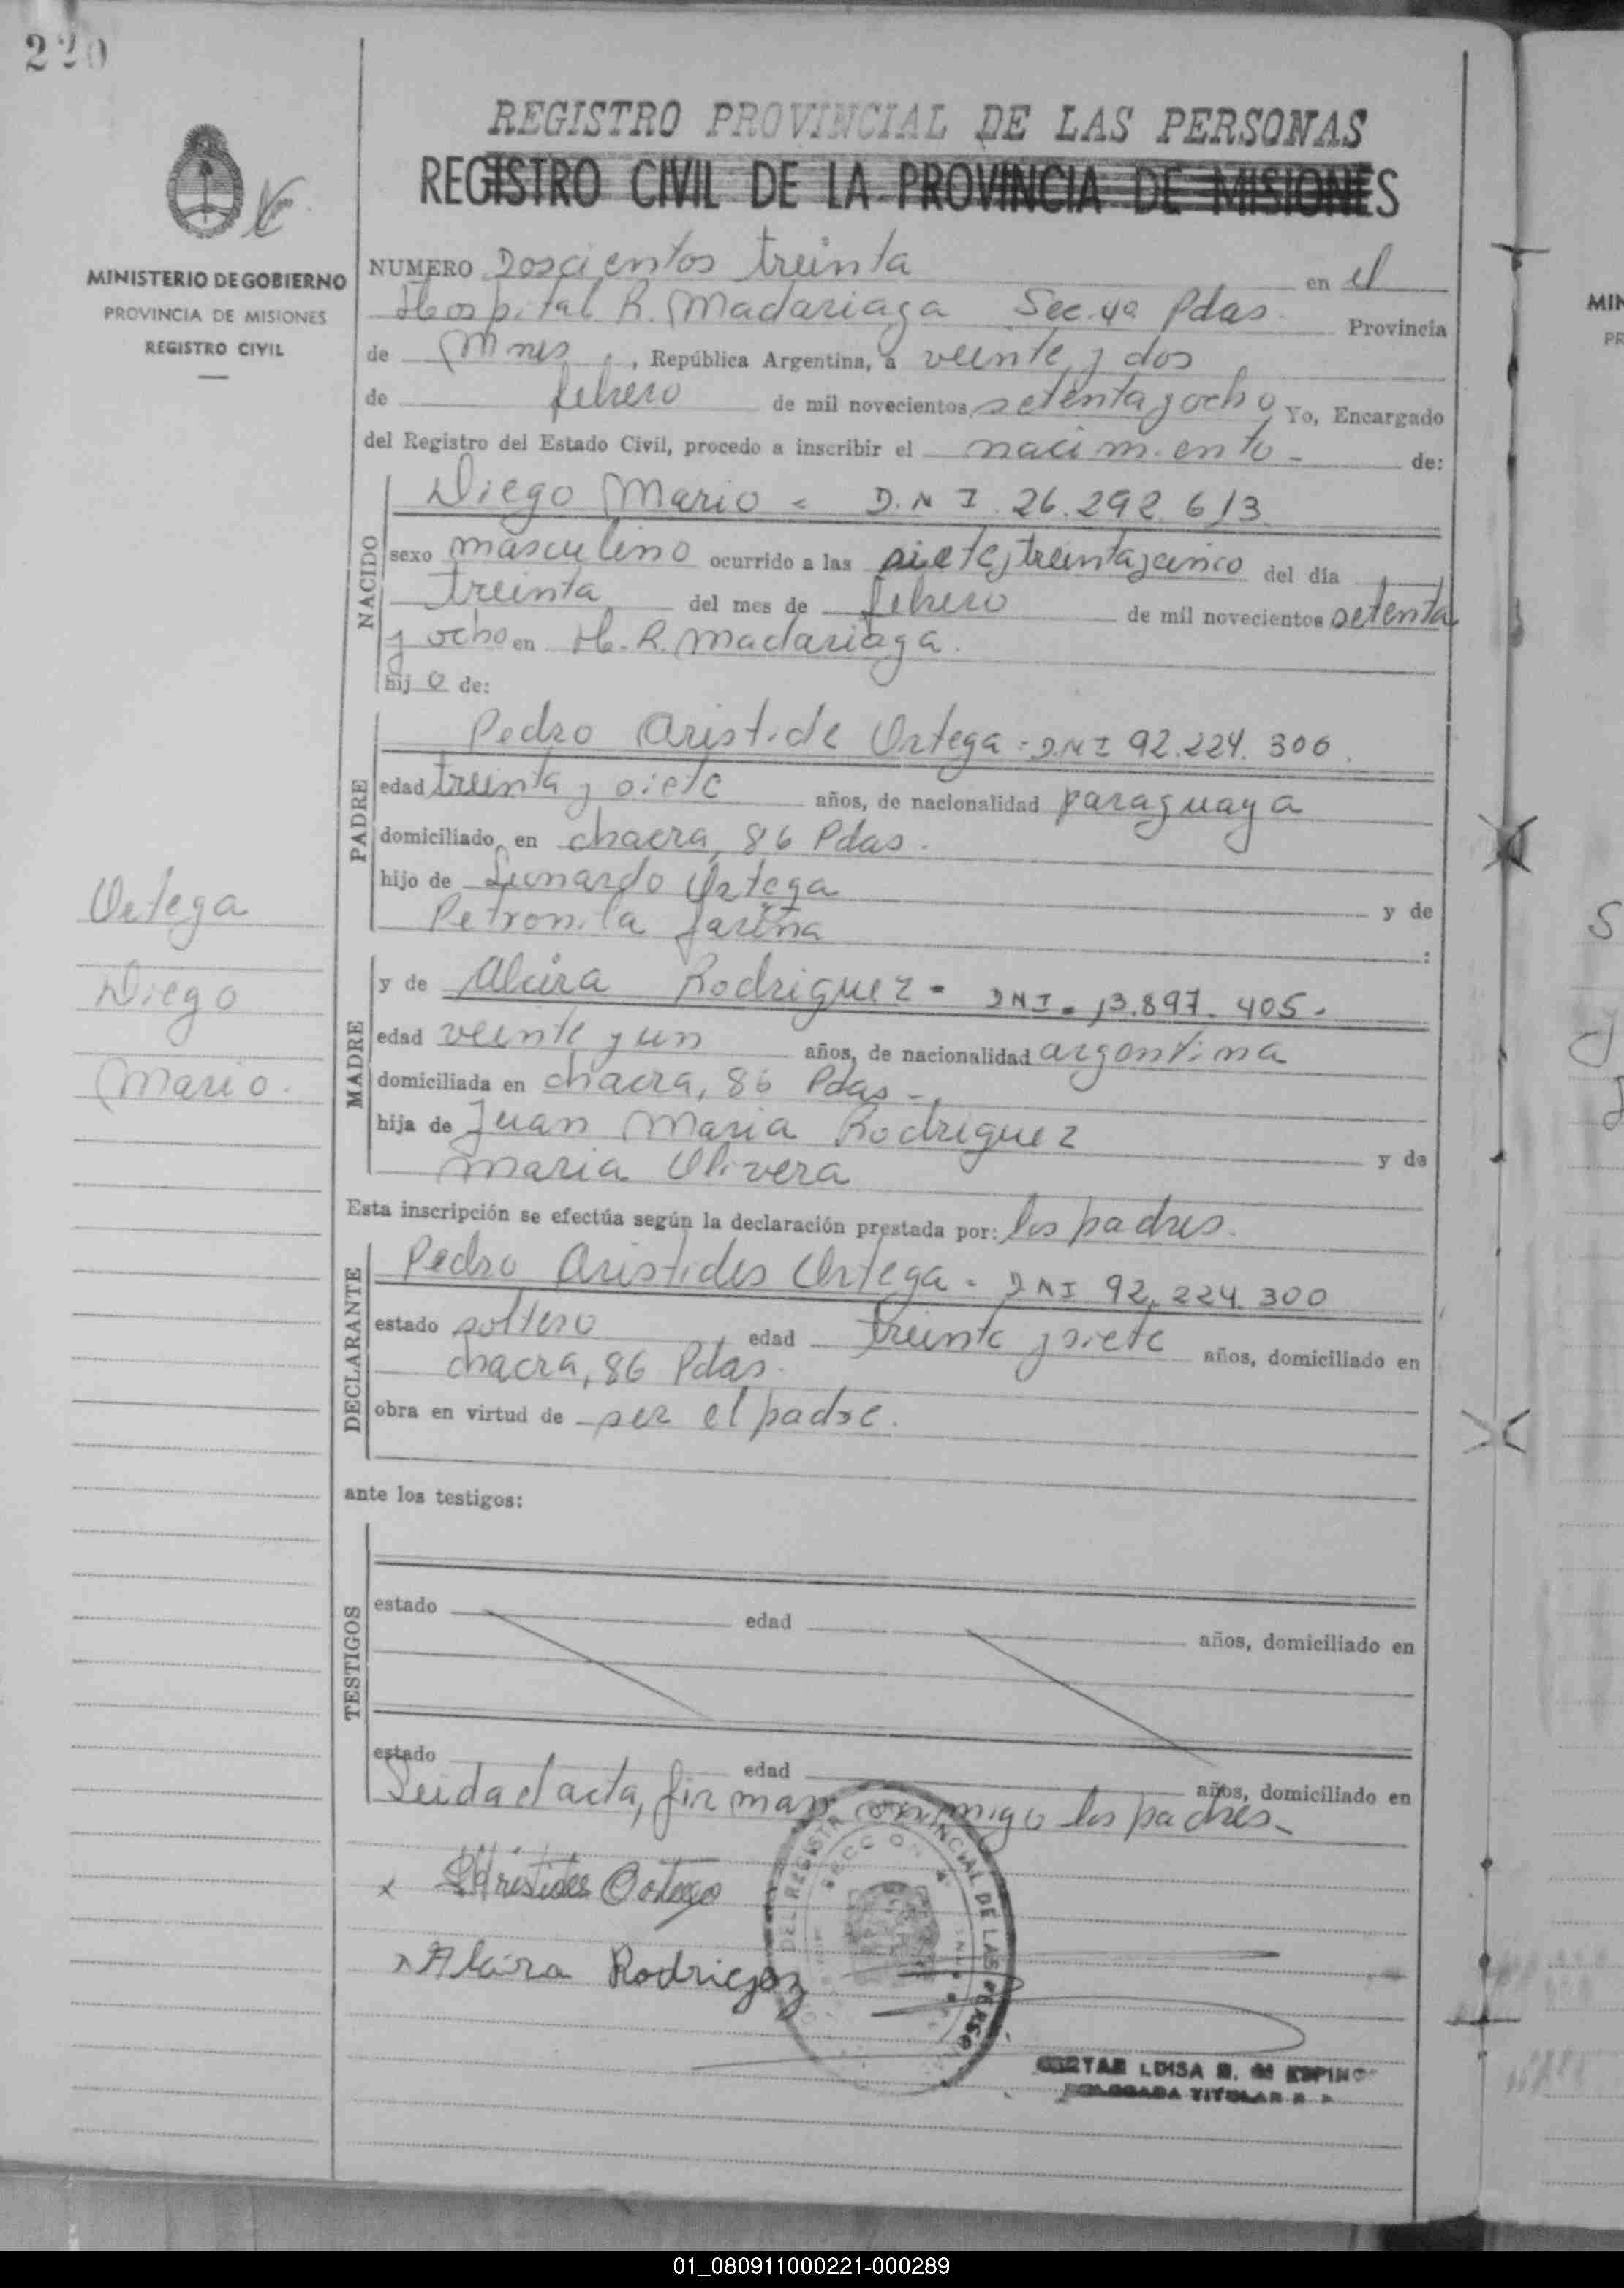 220
REGISTRO PROVINCIAL DE LAS PERSONAS
REGISTRO CIVIL DE LA PROVINCIA DE MISIONES
MINISTERIO DE GOBIERNO
PROVINCIA DE MISIONES
REGISTRO CIVIL
NUMERO Doscientos treinta en el
Hospital R. Madariaga Sec. 4a Pdas. Provincia
de Mnes, República Argentina, a veinte y dos
de febrero de mil novecientos setenta y ocho Yo, Encargado
del Registro del Estado Civil, procedo a inscribir el nacimiento - de:
NACIDO
Diego Mario = D.N.I. 26.292.613
sexo masculino ocurrido a las siete y treinta y cinco del día
treinta del mes de febrero de mil novecientos setenta
y ocho en H. R. Madariaga.
hijo de:
PADRE
Pedro Aristide Ortega = DNI 92.224.306.
edad treinta y siete años, de nacionalidad paraguaya
domiciliado en chacra, 86 Pdas.
hijo de Leonardo Ortega y de
Petronila Fariña :
Ortega
Diego
Mario.
MADRE
y de Alcira Rodriguez = DNI = 13.897.405.
edad veinte y un años, de nacionalidad argentina
domiciliada en chacra, 86 Pdas.-
hija de Juan Maria Rodriguez y de
Maria Olivera
Esta inscripción se efectúa según la declaración prestada por: los padres.
DECLARANTE
Pedro Aristides Ortega = DNI 92.224.300
estado soltero edad treinta y siete años, domiciliado en
chacra, 86 Pdas.
obra en virtud de ser el padre.
ante los testigos:
TESTIGOS
estado edad años, domiciliado en
estado edad años, domiciliado en
Leida el acta, firman conmigo los padres.
x Aristides Ortega
x Alcira Rodrigoz
DEL REGISTRO PROVINCIAL DE LAS PERSO
SECCION 4
LUISA B. de ESPINO
TITULAR
MIN
PR
S
01_080911000221-000289